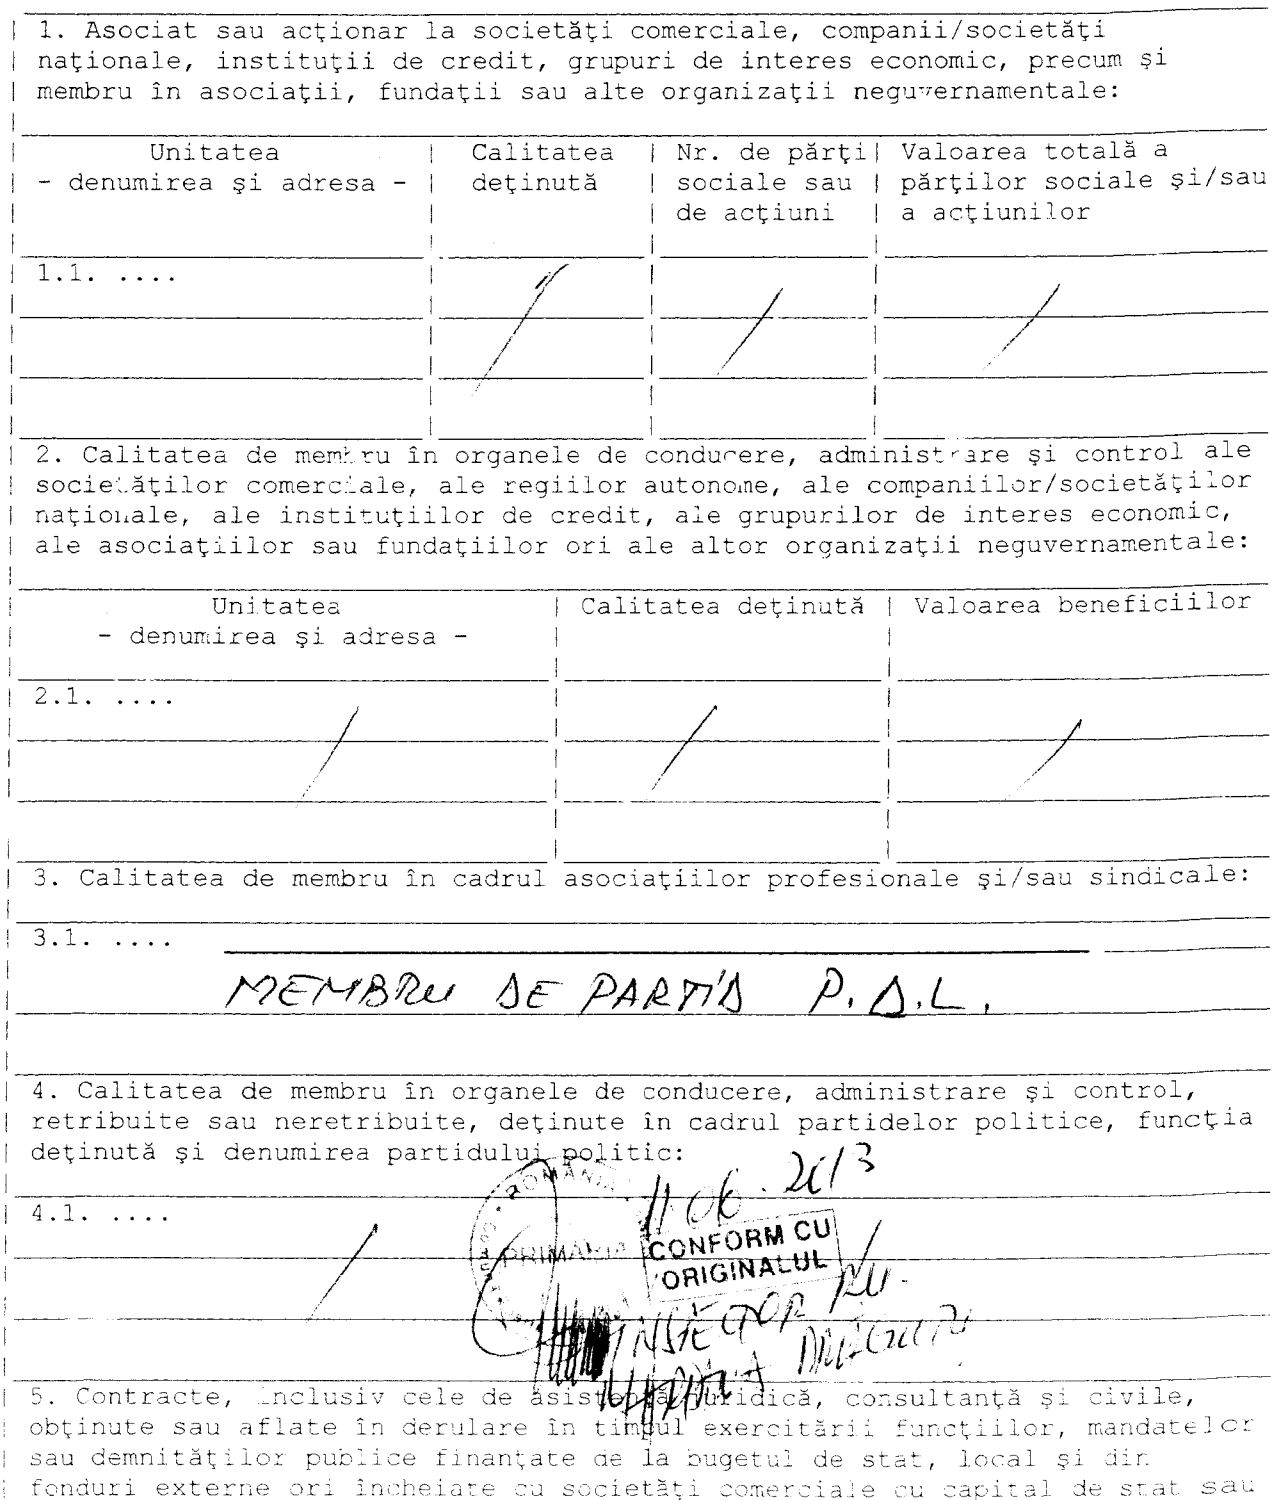 1. Asociat sau acţionar la societăţi comerciale, companii/societăţi
naţionale, instituţii de credit, grupuri de interes economic, precum şi
membru în asociaţii, fundaţii sau alte organizaţii neguvernamentale:
Unitatea | Calitatea | Nr. de părţi | Valoarea totală a
- denumirea şi adresa - | deţinută | sociale sau | părţilor sociale şi/sau
de acţiuni | a acţiunilor
1.1. ....
2. Calitatea de membru în organele de conducere, administrare şi control ale
societăţilor comerciale, ale regiilor autonome, ale companiilor/societăţilor
naţionale, ale instituţiilor de credit, ale grupurilor de interes economic,
ale asociaţiilor sau fundaţiilor ori ale altor organizaţii neguvernamentale:
Unitatea | Calitatea deţinută | Valoarea beneficiilor
- denumirea şi adresa -
2.1. ....
3. Calitatea de membru în cadrul asociaţiilor profesionale şi/sau sindicale:
3.1. ....
MEMBRU DE PARTID P.D.L.
4. Calitatea de membru în organele de conducere, administrare şi control,
retribuite sau neretribuite, deţinute în cadrul partidelor politice, funcţia
deţinută şi denumirea partidului politic:
11.06.2013
ROMÂNIA
4.1. ....
PRIMĂRIA
CONFORM CU
ORIGINALUL
INSPECTOR
5. Contracte, inclusiv cele de asistenţă juridică, consultanţă şi civile,
obţinute sau aflate în derulare în timpul exercitării funcţiilor, mandatelor
sau demnităţilor publice finanţate de la bugetul de stat, local şi din
fonduri externe ori încheiate cu societăţi comerciale cu capital de stat sau